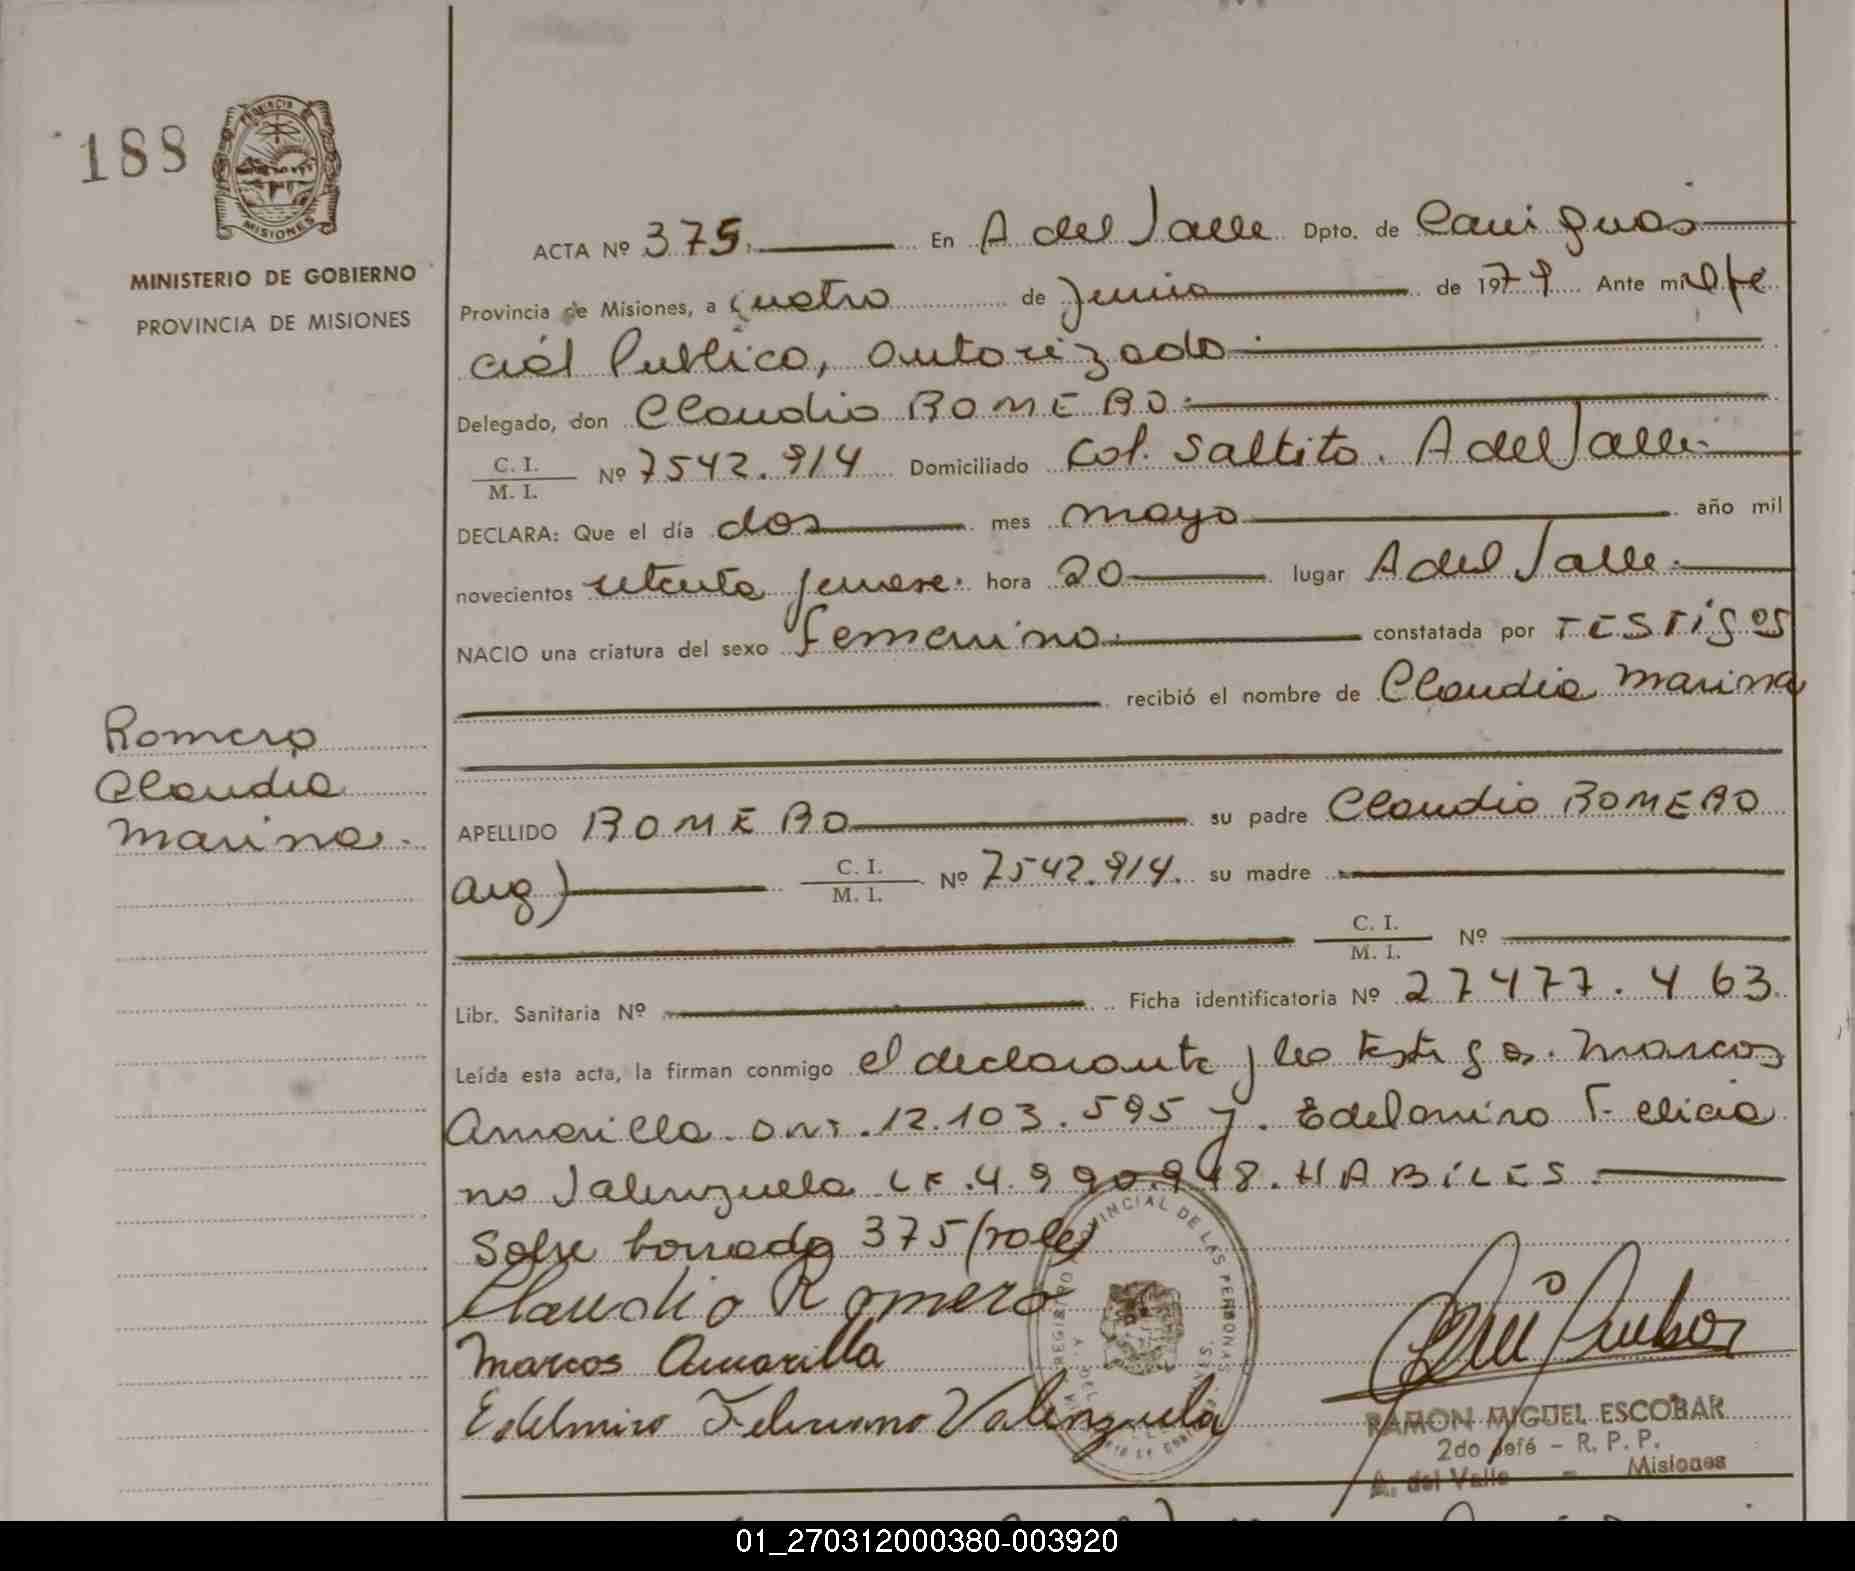 188
PROVINCIA DE
MISIONES
MINISTERIO DE GOBIERNO
PROVINCIA DE MISIONES
ACTA Nº 375. En A del Valle Dpto. de Cainguas
Provincia de Misiones, a cuatro de junio de 1979 Ante mi Ofi
cial Publico, autorizado
Delegado, don Claudio ROMERO
C. I. / M. I. Nº 7542.914 Domiciliado Col. Saltito. A del Valle
DECLARA: Que el día dos mes mayo año mil
novecientos setenta y nueve. hora 20 lugar A del Valle
NACIO una criatura del sexo femenino constatada por TESTigos
recibió el nombre de Claudia Marina
Romero
Claudia
Marina.
APELLIDO ROMERO su padre Claudio ROMERO
arg) C. I. / M. I. Nº 7542.914. su madre
C. I. / M. I. Nº
Libr. Sanitaria Nº Ficha identificatoria Nº 27477.463.
Leída esta acta, la firman conmigo el declarante y los testigos. Marcos
Amarilla. DNI. 12.103.595 y. Edelmiro Felicia
no Valenzuela LE.4.990.948. HABiLES
Sobre borrado 375 (vale)
Claudio Romero
Marcos Amarilla
Edelmiro Feliciano Valenzuela
REGISTRO PROVINCIAL DE LAS PERSONAS
RAMON MIGUEL ESCOBAR
2do Jefé - R. P. P.
A. del Valle - Misiones
01_270312000380-003920